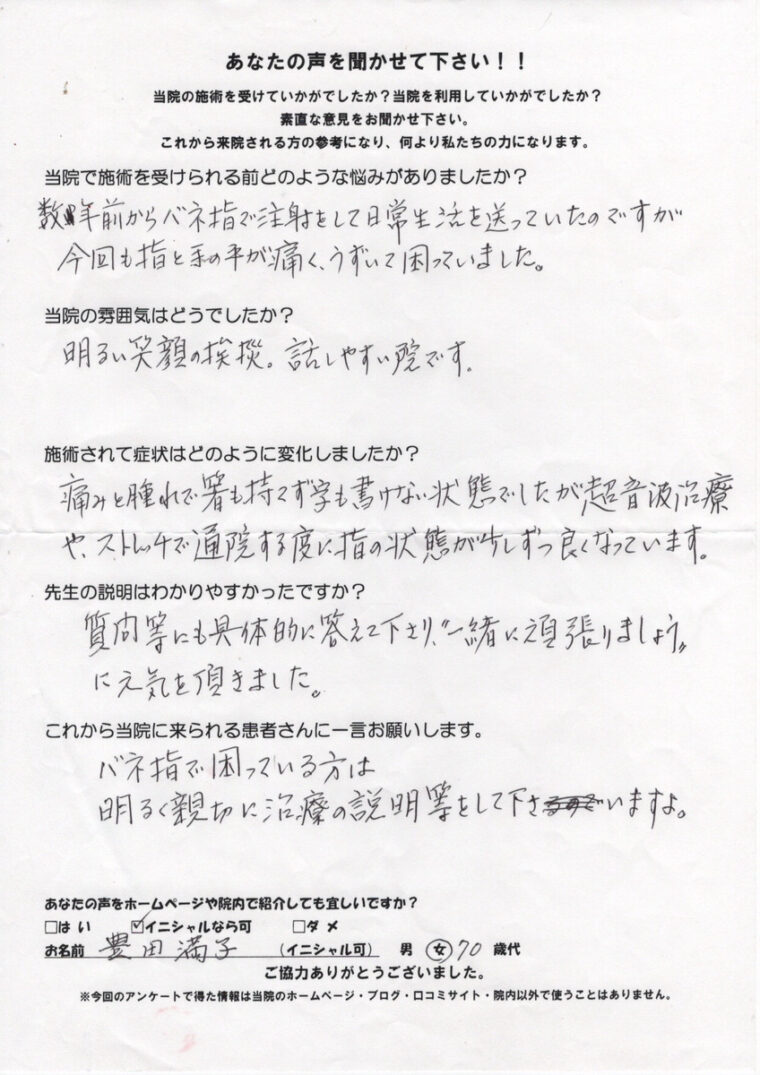 あなたの声を聞かせて下さい！！
当院の施術を受けていかがでしたか？当院を利用していかがでしたか？
素直な意見をお聞かせ下さい。
これから来院される方の参考になり、何より私たちの力になります。
当院で施術を受けられる前どのような悩みがありましたか？
数年前からバネ指で注射をして日常生活を送っていたのですが
今回も指と手の平が痛く、うずいて困っていました。
当院の雰囲気はどうでしたか？
明るい笑顔の挨拶。話しやすい院です。
施術されて症状はどのように変化しましたか？
痛みと腫れで箸も持てず字も書けない状態でしたが超音波治療
や、ストレッチで通院する度に指の状態が少しずつ良くなっています。
先生の説明はわかりやすかったですか？
質問等にも具体的に答えて下さり、"一緒に頑張りましょう"
に元気を頂きました。
これから当院に来られる患者さんに一言お願いします。
バネ指で困っている方は
明るく親切に治療の説明等をして下さいますよ。
あなたの声をホームページや院内で紹介しても宜しいですか？
□はい ☑イニシャルなら可 □ダメ
お名前 豊田満子 （イニシャル可） 男 女 70 歳代
ご協力ありがとうございました。
※今回のアンケートで得た情報は当院のホームページ・ブログ・口コミサイト・院内以外で使うことはありません。